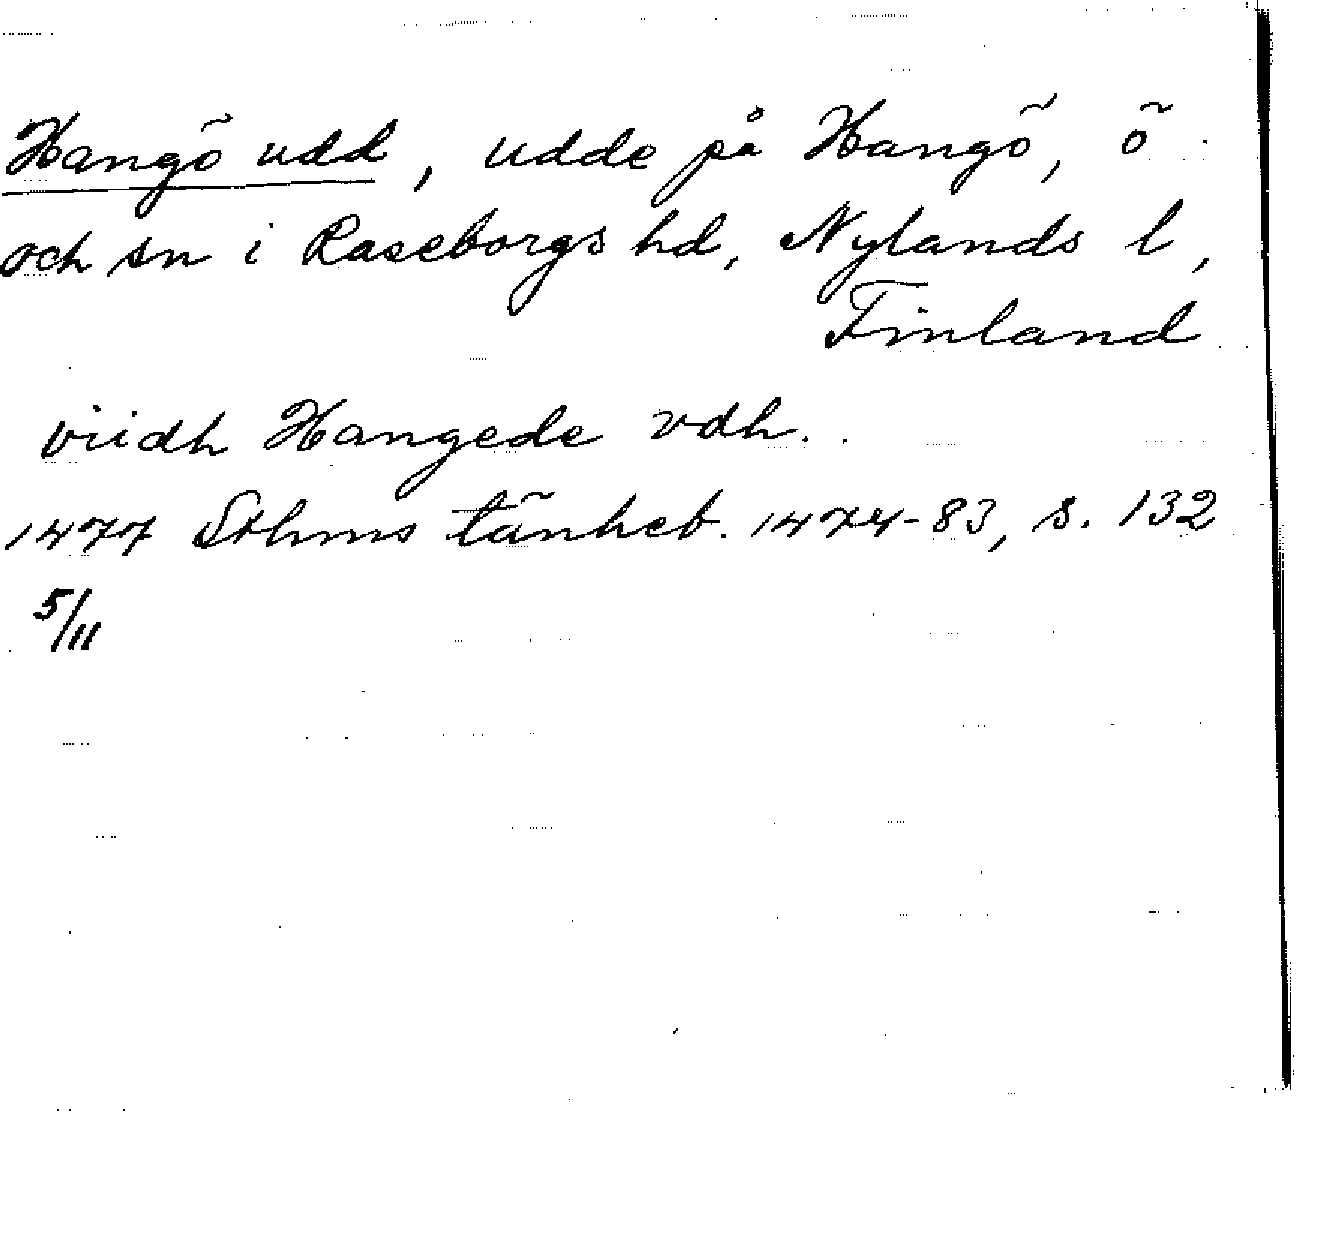 Hangö udd, udde på Hangö, ö
och sn i Raseborgs hd, Nylands l,
Finland
viidh Hangede vdh.
1477 Sthms tänkeb. 1474-83, s. 132
5/11